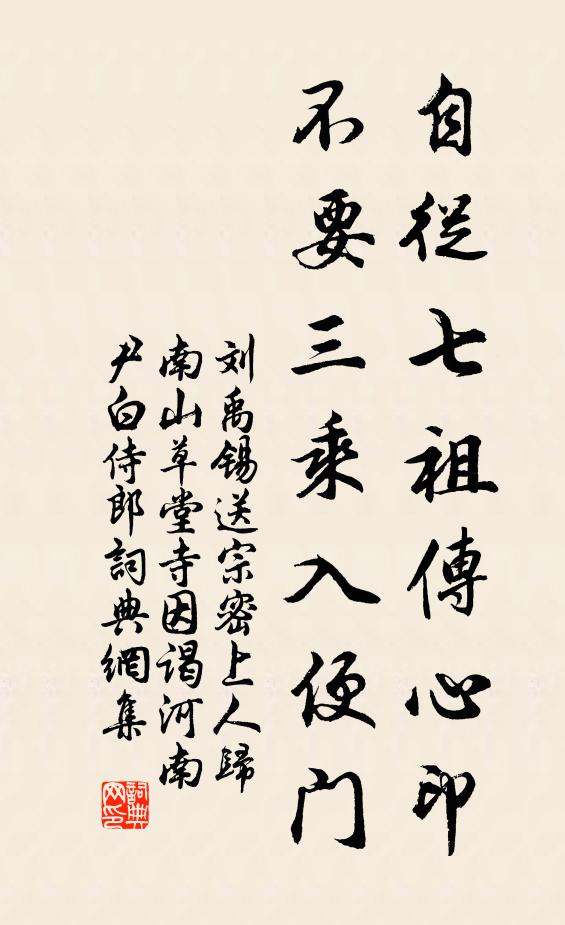 自從七祖傳心印
不要三乘入便門
刘禹锡送宗密上人歸
南山草堂寺因谒河南
尹白侍郎詞典網集
詞典
网印